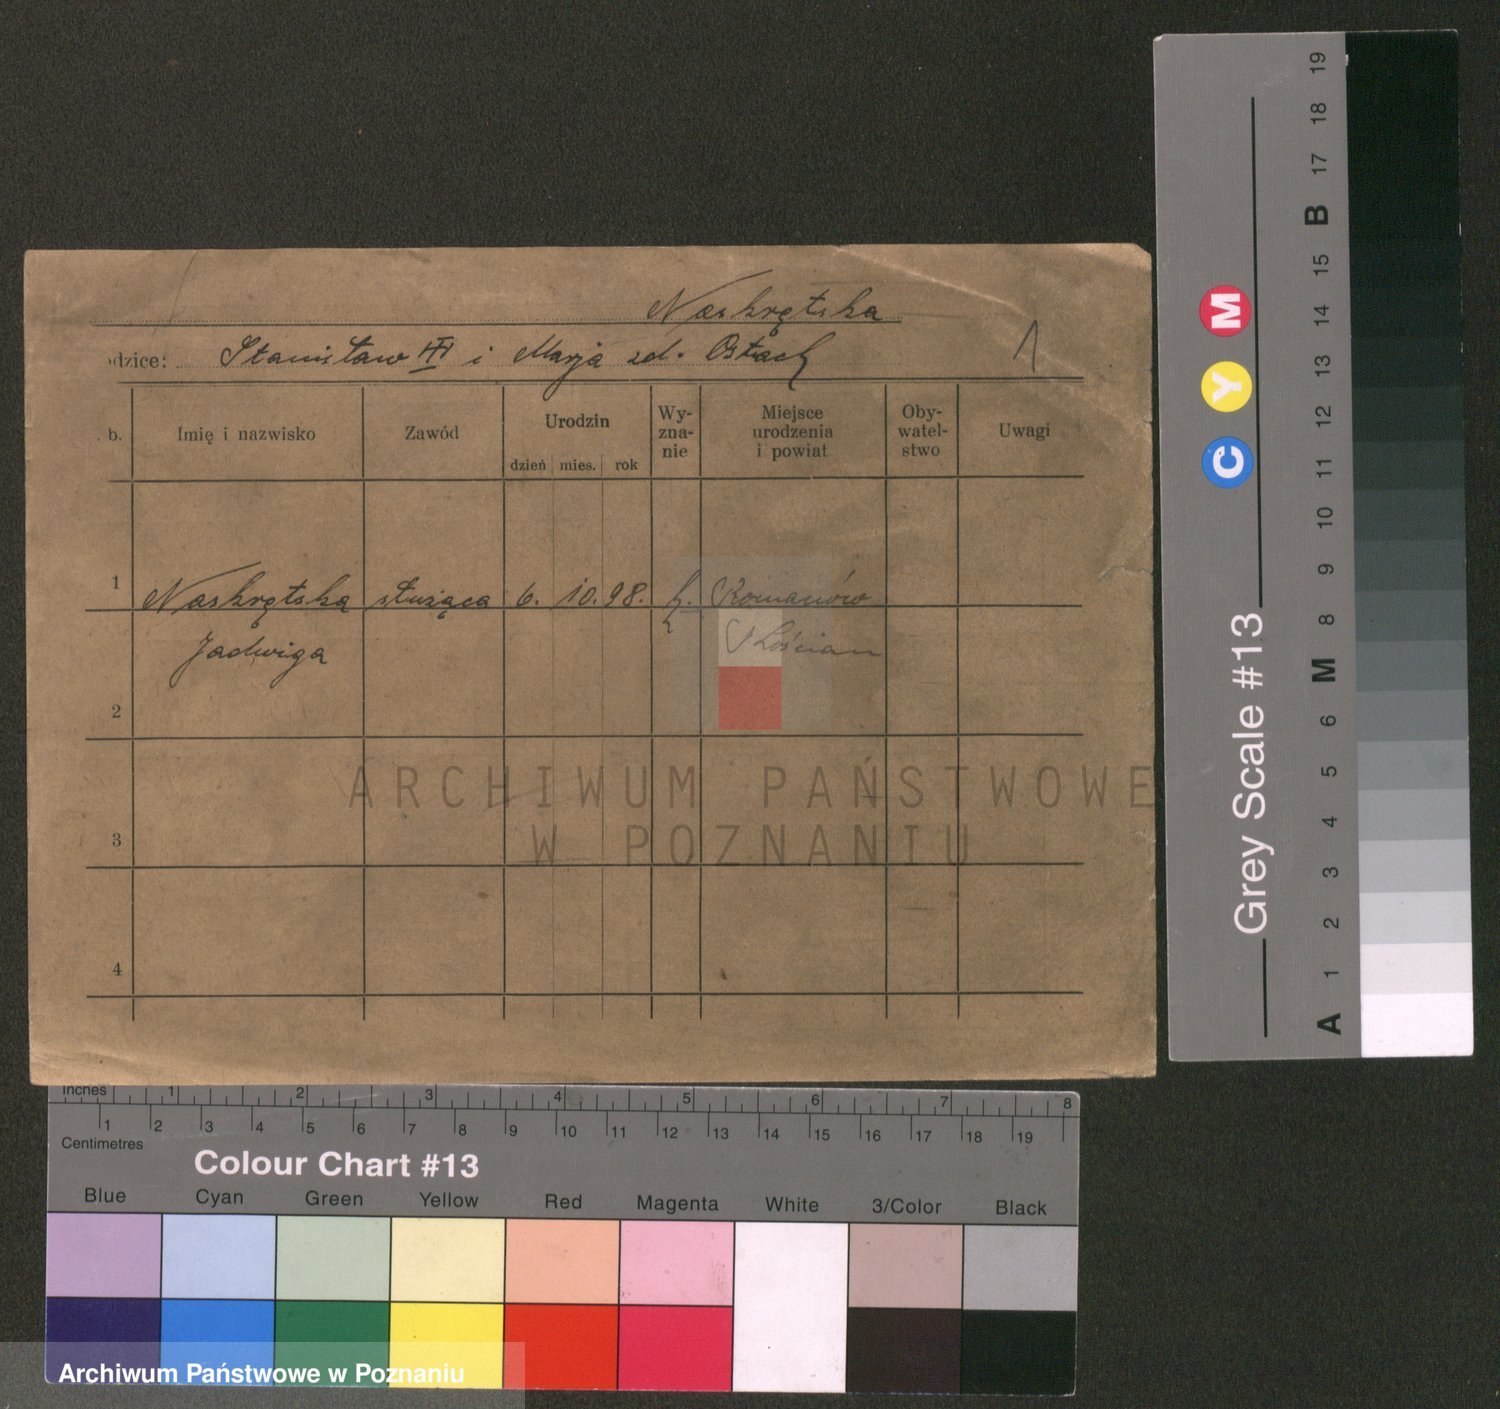 Naskrętska
dzice: Stanisław III i Marja zd. Ostach
b. Imię i nazwisko Zawód Urodzin dzień mies. rok Wy-zna-nie Miejsce urodzenia i powiat Oby-watel-stwo Uwagi
1
1 Naskrętska służąca 6. 10. 98. k. Romanów
Jadwiga Kościan
2
3
4
ARCHIWUM PAŃSTWOWE
W POZNANIU
Inches 1 2 3 4 5 6 7 8
1 2 3 4 5 6 7 8 9 10 11 12 13 14 15 16 17 18 19
Centimetres
Colour Chart #13
Blue Cyan Green Yellow Red Magenta White 3/Color Black
Archiwum Państwowe w Poznaniu
Grey Scale #13
C Y M
A 1 2 3 4 5 6 M 8 9 10 11 12 13 14 15 B 17 18 19